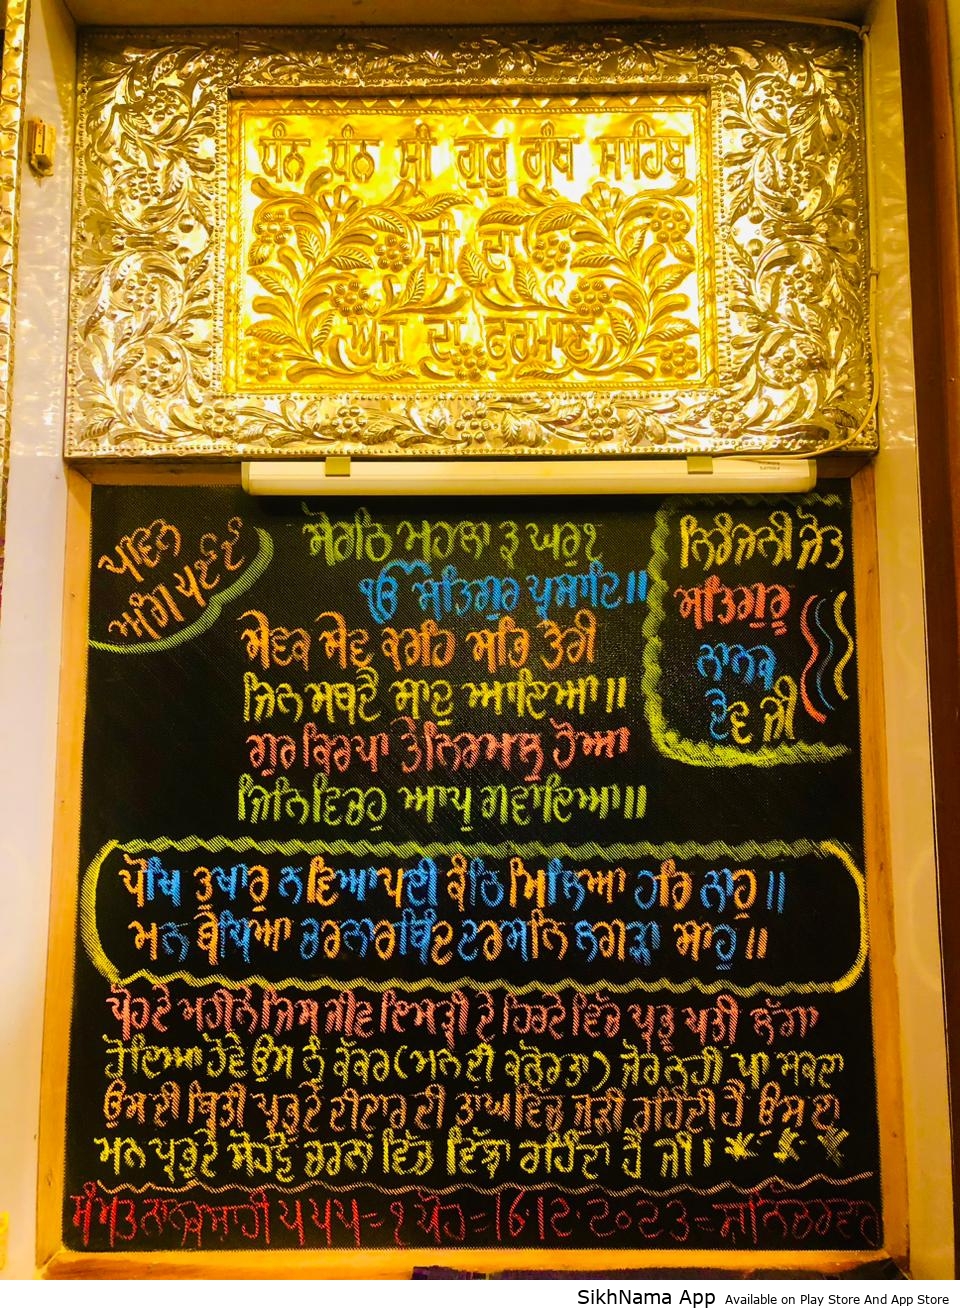 ਧੰਨ ਧੰਨ ਸ੍ਰੀ ਗੁਰੂ ਗ੍ਰੰਥ ਸਾਹਿਬ
ਜੀ ਦਾ
ਅੱਜ ਦਾ ਫੁਰਮਾਣ
ਪਾਵਨ
ਅੰਗ ਪ੬੬੬
ਸੋਰਠਿ ਮਹਲਾ ੩ ਘਰੁ ੧
ੴ ਸਤਿਗੁਰ ਪ੍ਰਸਾਦਿ॥
ਸੇਵਕ ਸੇਵ ਕਰਹਿ ਸਭਿ ਤੇਰੀ
ਜਿਨ ਸਬਦੈ ਸਾਦੁ ਆਇਆ॥
ਗੁਰ ਕਿਰਪਾ ਤੇ ਨਿਰਮਲੁ ਹੋਆ
ਜਿਨਿ ਵਿਚਹੁ ਆਪੁ ਗਵਾਇਆ॥
ਨਿਰੰਜਨੀ ਜੋਤ
ਸਤਿਗੁਰੂ
ਨਾਨਕ
ਦੇਵ ਜੀ
ਪੋਖਿ ਤੁਖਾਰੁ ਨ ਵਿਆਪਈ ਕੰਠਿ ਮਿਲਿਆ ਹਰਿ ਨਾਹੁ॥
ਮਨ ਬੇਧਿਆ ਚਰਨਾਰਬਿੰਦ ਦਰਸਨਿ ਲਗੜਾ ਸਾਹੁ॥
ਪੋਹ ਦੇ ਮਹੀਨੇ ਜਿਸ ਜੀਵ ਇਸਤ੍ਰੀ ਦੇ ਹਿਰਦੇ ਵਿੱਚ ਪ੍ਰਭੂ ਪਤੀ ਲੱਗਾ
ਹੋਇਆ ਹੋਵੇ ਉਸ ਨੂੰ ਕੱਕਰ (ਮਨ ਦੀ ਕਠੋਰਤਾ) ਜੋਰ ਨਹੀ ਪਾ ਸਕਦਾ
ਉਸ ਦੀ ਬਿਰਤੀ ਪ੍ਰਭੂ ਦੇ ਦੀਦਾਰ ਦੀ ਤਾਂਘ ਵਿੱਚ ਜੁੜੀ ਰਹਿੰਦੀ ਹੈ ਉਸ ਦਾ
ਮਨ ਪ੍ਰਭੂ ਦੇ ਸੋਹਣੇ ਚਰਨਾਂ ਵਿੱਚ ਵਿੱਝਾ ਰਹਿੰਦਾ ਹੈ ਜੀ।
ਸੰਮਤ ਨਾਨਕਸ਼ਾਹੀ ੫੫੫=੧ ਪੋਹ=16.12.2023=ਸ਼ਨਿੱਚਰਵਾਰ
SikhNama App Available on Play Store And App Store